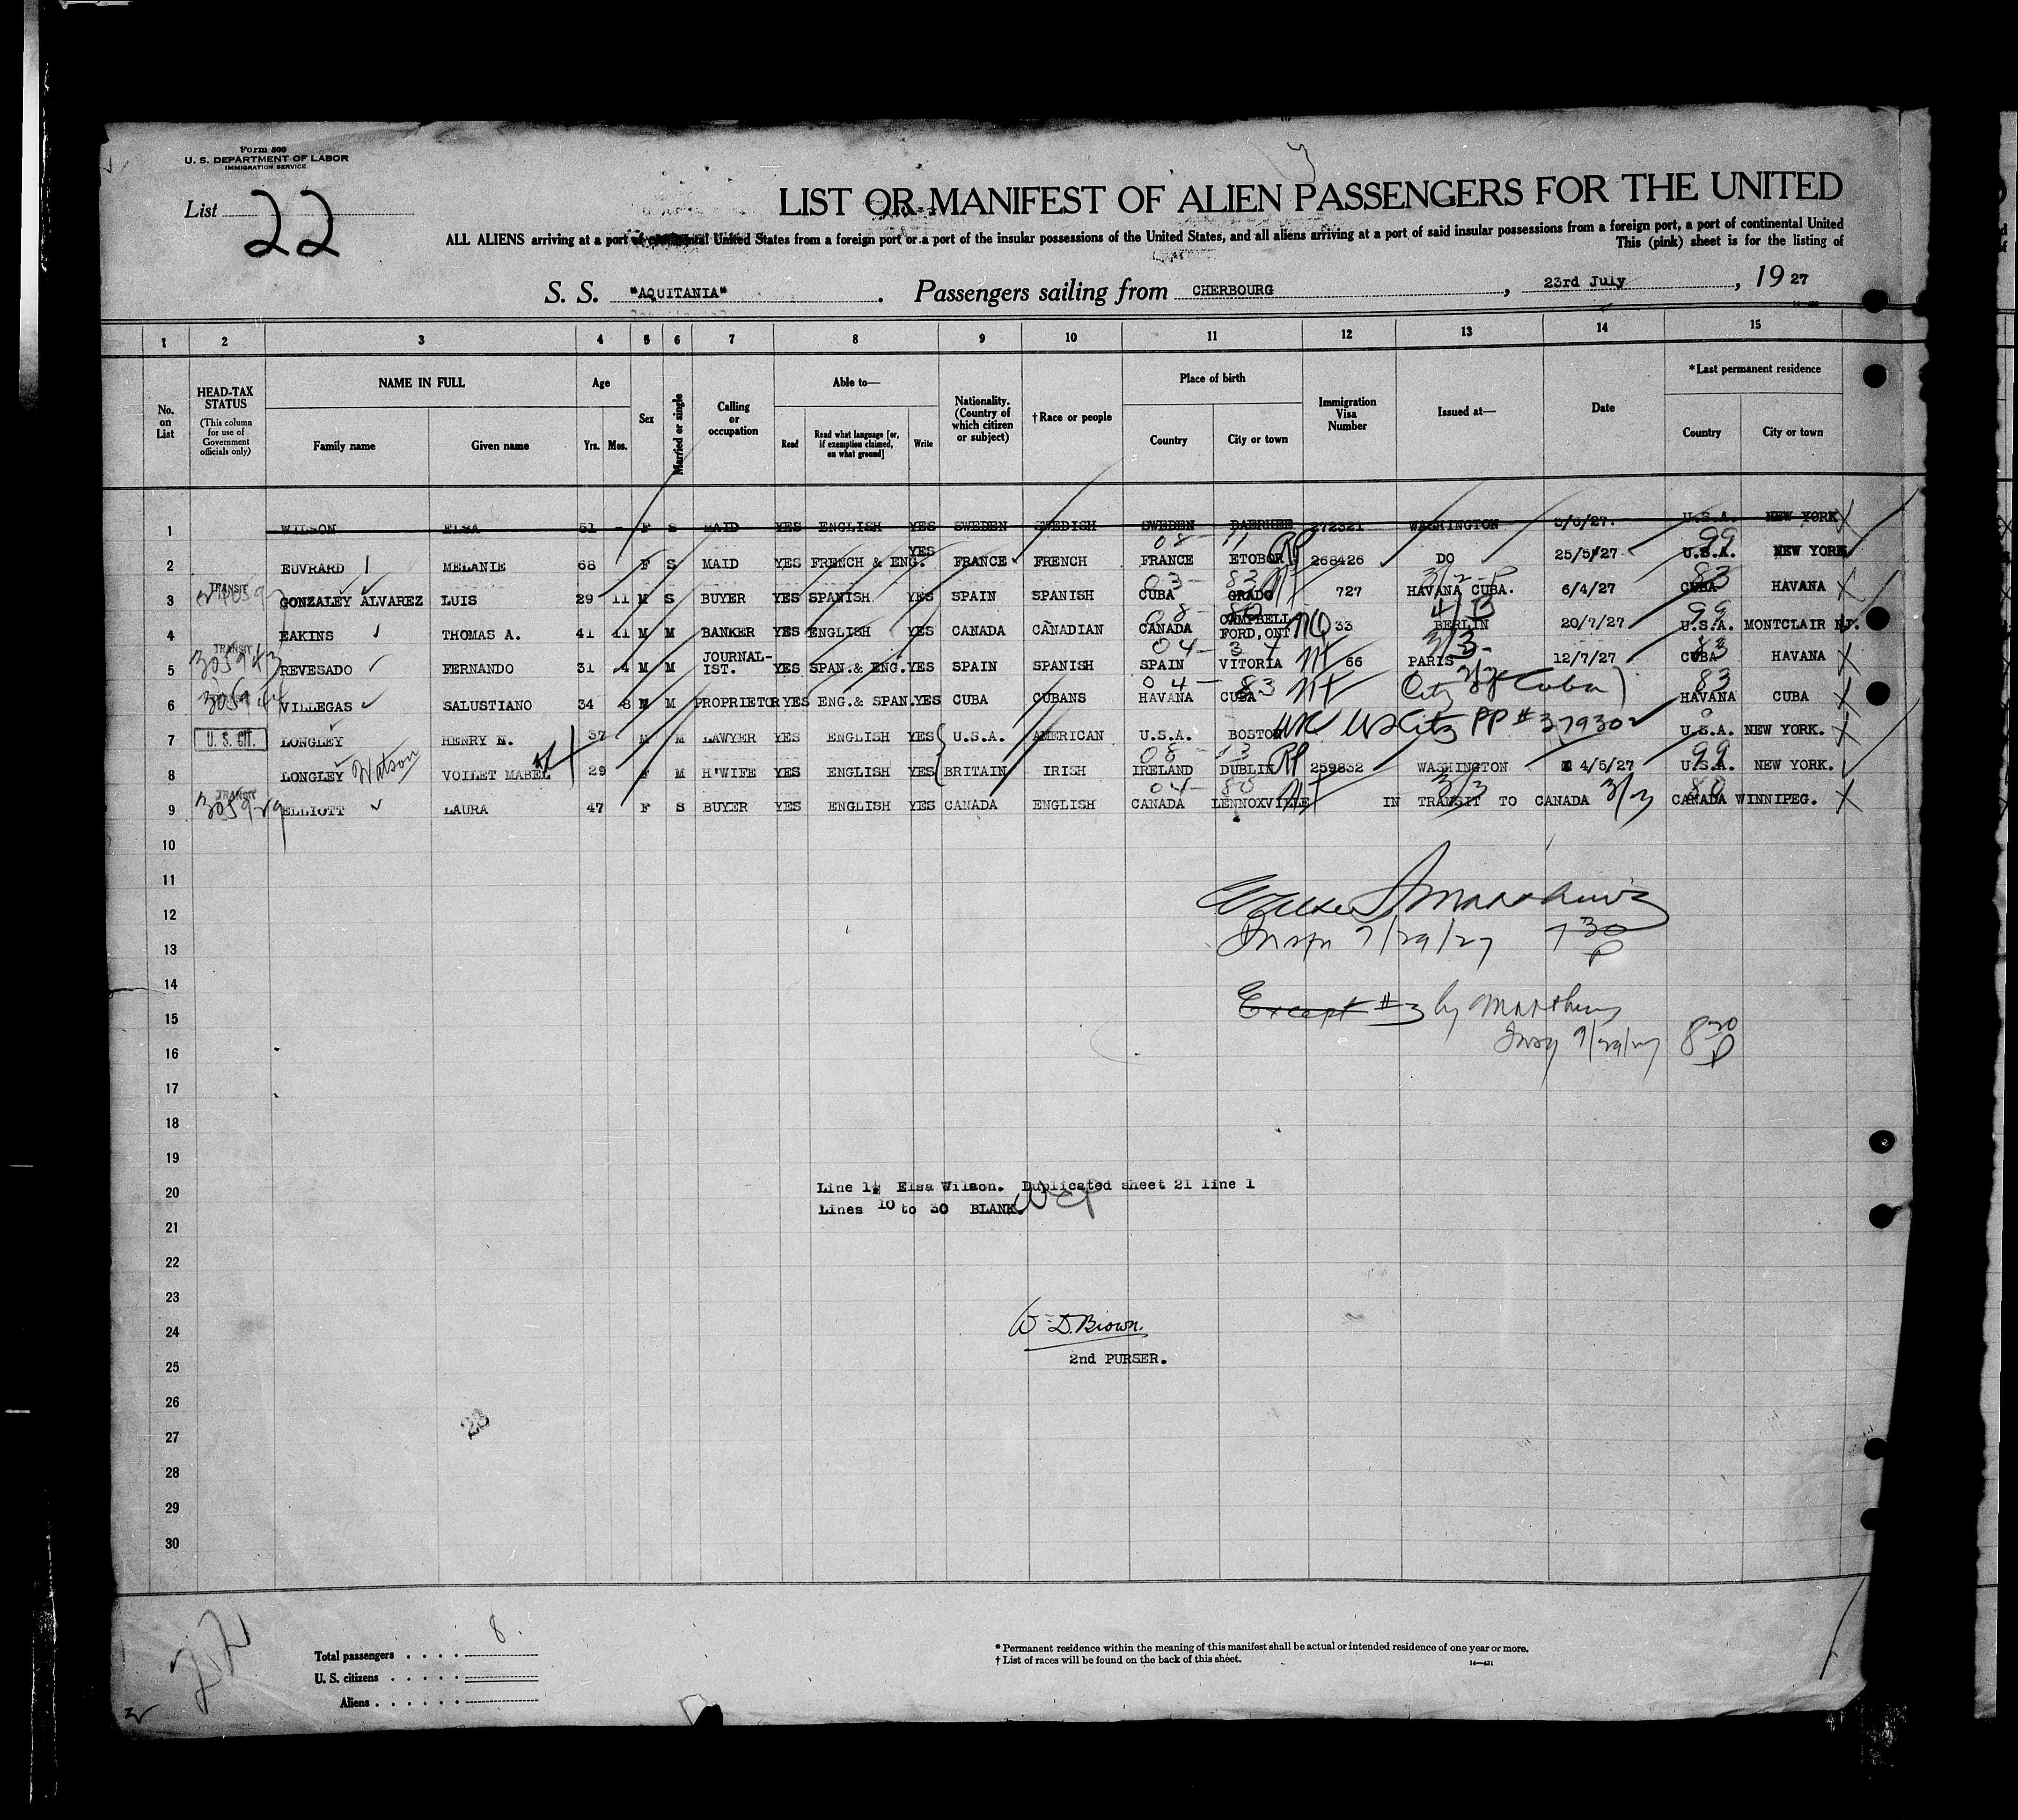 Form 500
U. S. DEPARTMENT OF LABOR
IMMIGRATION SERVICE
List 22
LIST OR MANIFEST OF ALIEN PASSENGERS FOR THE UNITED
ALL ALIENS arriving at a port of continental United States from a foreign port or a port of the insular possessions of the United States, and all aliens arriving at a port of said insular possessions from a foreign port, a port of continental United
This (pink) sheet is for the listing of
S. S. "AQUITANIA" . Passengers sailing from CHERBOURG , 23rd July , 19 27
1 2 3 4 5 6 7 8 9 10 11 12 13 14 15
No. on List
HEAD-TAX STATUS (This column for use of Government officials only)
NAME IN FULL
Family name Given name
Age
Yrs. Mos.
Sex
Married or single
Calling or occupation
Able to—
Read Read what language [or, if exemption claimed, on what ground] Write
Nationality. (Country of which citizen or subject)
†Race or people
Place of birth
Country City or town
Immigration Visa Number
Issued at—
Date
*Last permanent residence
Country City or town
1 WILSON ELSA 51 - F S MAID YES ENGLISH YES SWEDEN SWEDISH SWEDEN 272321 WASHINGTON U.S.A. NEW YORK
08 - 11 RP 99
2 EUVRARD MELANIE 68 F S MAID YES FRENCH & ENG. YES FRANCE FRENCH FRANCE ETOBOR 268426 DO 25/5/27 U.S.A. NEW YORK
TRANSIT 03 - 83 83
3 GONZALEY ALVAREZ LUIS 29 11 M S BUYER YES SPANISH YES SPAIN SPANISH CUBA GRADO 727 HAVANA CUBA. 6/4/27 CUBA HAVANA
08 - 80 99
4 EAKINS THOMAS A. 41 11 M M BANKER YES ENGLISH YES CANADA CANADIAN CANADA CAMPBELL FORD, ONT 33 BERLIN 20/7/27 U.S.A. MONTCLAIR NJ.
TRANSIT 305943 3/3 83
5 REVESADO FERNANDO 31 4 M M JOURNAL-IST. YES SPAN.& ENG. YES SPAIN SPANISH SPAIN VITORIA 66 PARIS 12/7/27 CUBA HAVANA
305944 04 - 83 83
6 VILLEGAS SALUSTIANO 34 8 M M PROPRIETOR YES ENG.& SPAN. YES CUBA CUBANS HAVANA CUBA HAVANA CUBA
7 U. S. CIT. LONGLEY HENRY N. 37 M M LAWYER YES ENGLISH YES U.S.A. AMERICAN U.S.A. BOSTON US Citz PP # 379302 U.S.A. NEW YORK.
08 - 13 RP 99
8 LONGLEY Watson VOILET MABEL 29 F M H'WIFE YES ENGLISH YES BRITAIN IRISH IRELAND DUBLIN 259832 WASHINGTON 4/5/27 U.S.A. NEW YORK.
TRANSIT 04 - 80 3/3 80
9 ELLIOTT LAURA 47 F S BUYER YES ENGLISH YES CANADA ENGLISH CANADA LENNOXVILLE IN TRANSIT TO CANADA 3/3 CANADA WINNIPEG.
10
11
12
13 Insp 7/29/27 7 30 P
14
15 Except #3 by Matthews
16 Insp 7/29/27 8 30 P
17
18
19
20 Line 1, Elsa Wilson. Duplicated sheet 21 line 1
21 Lines 10 to 30 BLANK.
22
23
24 W. D. Brown.
25 2nd PURSER.
26
27
28
29
30
23
22
Total passengers . . . . 8.
U. S. citizens . . . . .
Aliens . . . . . .
* Permanent residence within the meaning of this manifest shall be actual or intended residence of one year or more.
† List of races will be found on the back of this sheet.
14—431